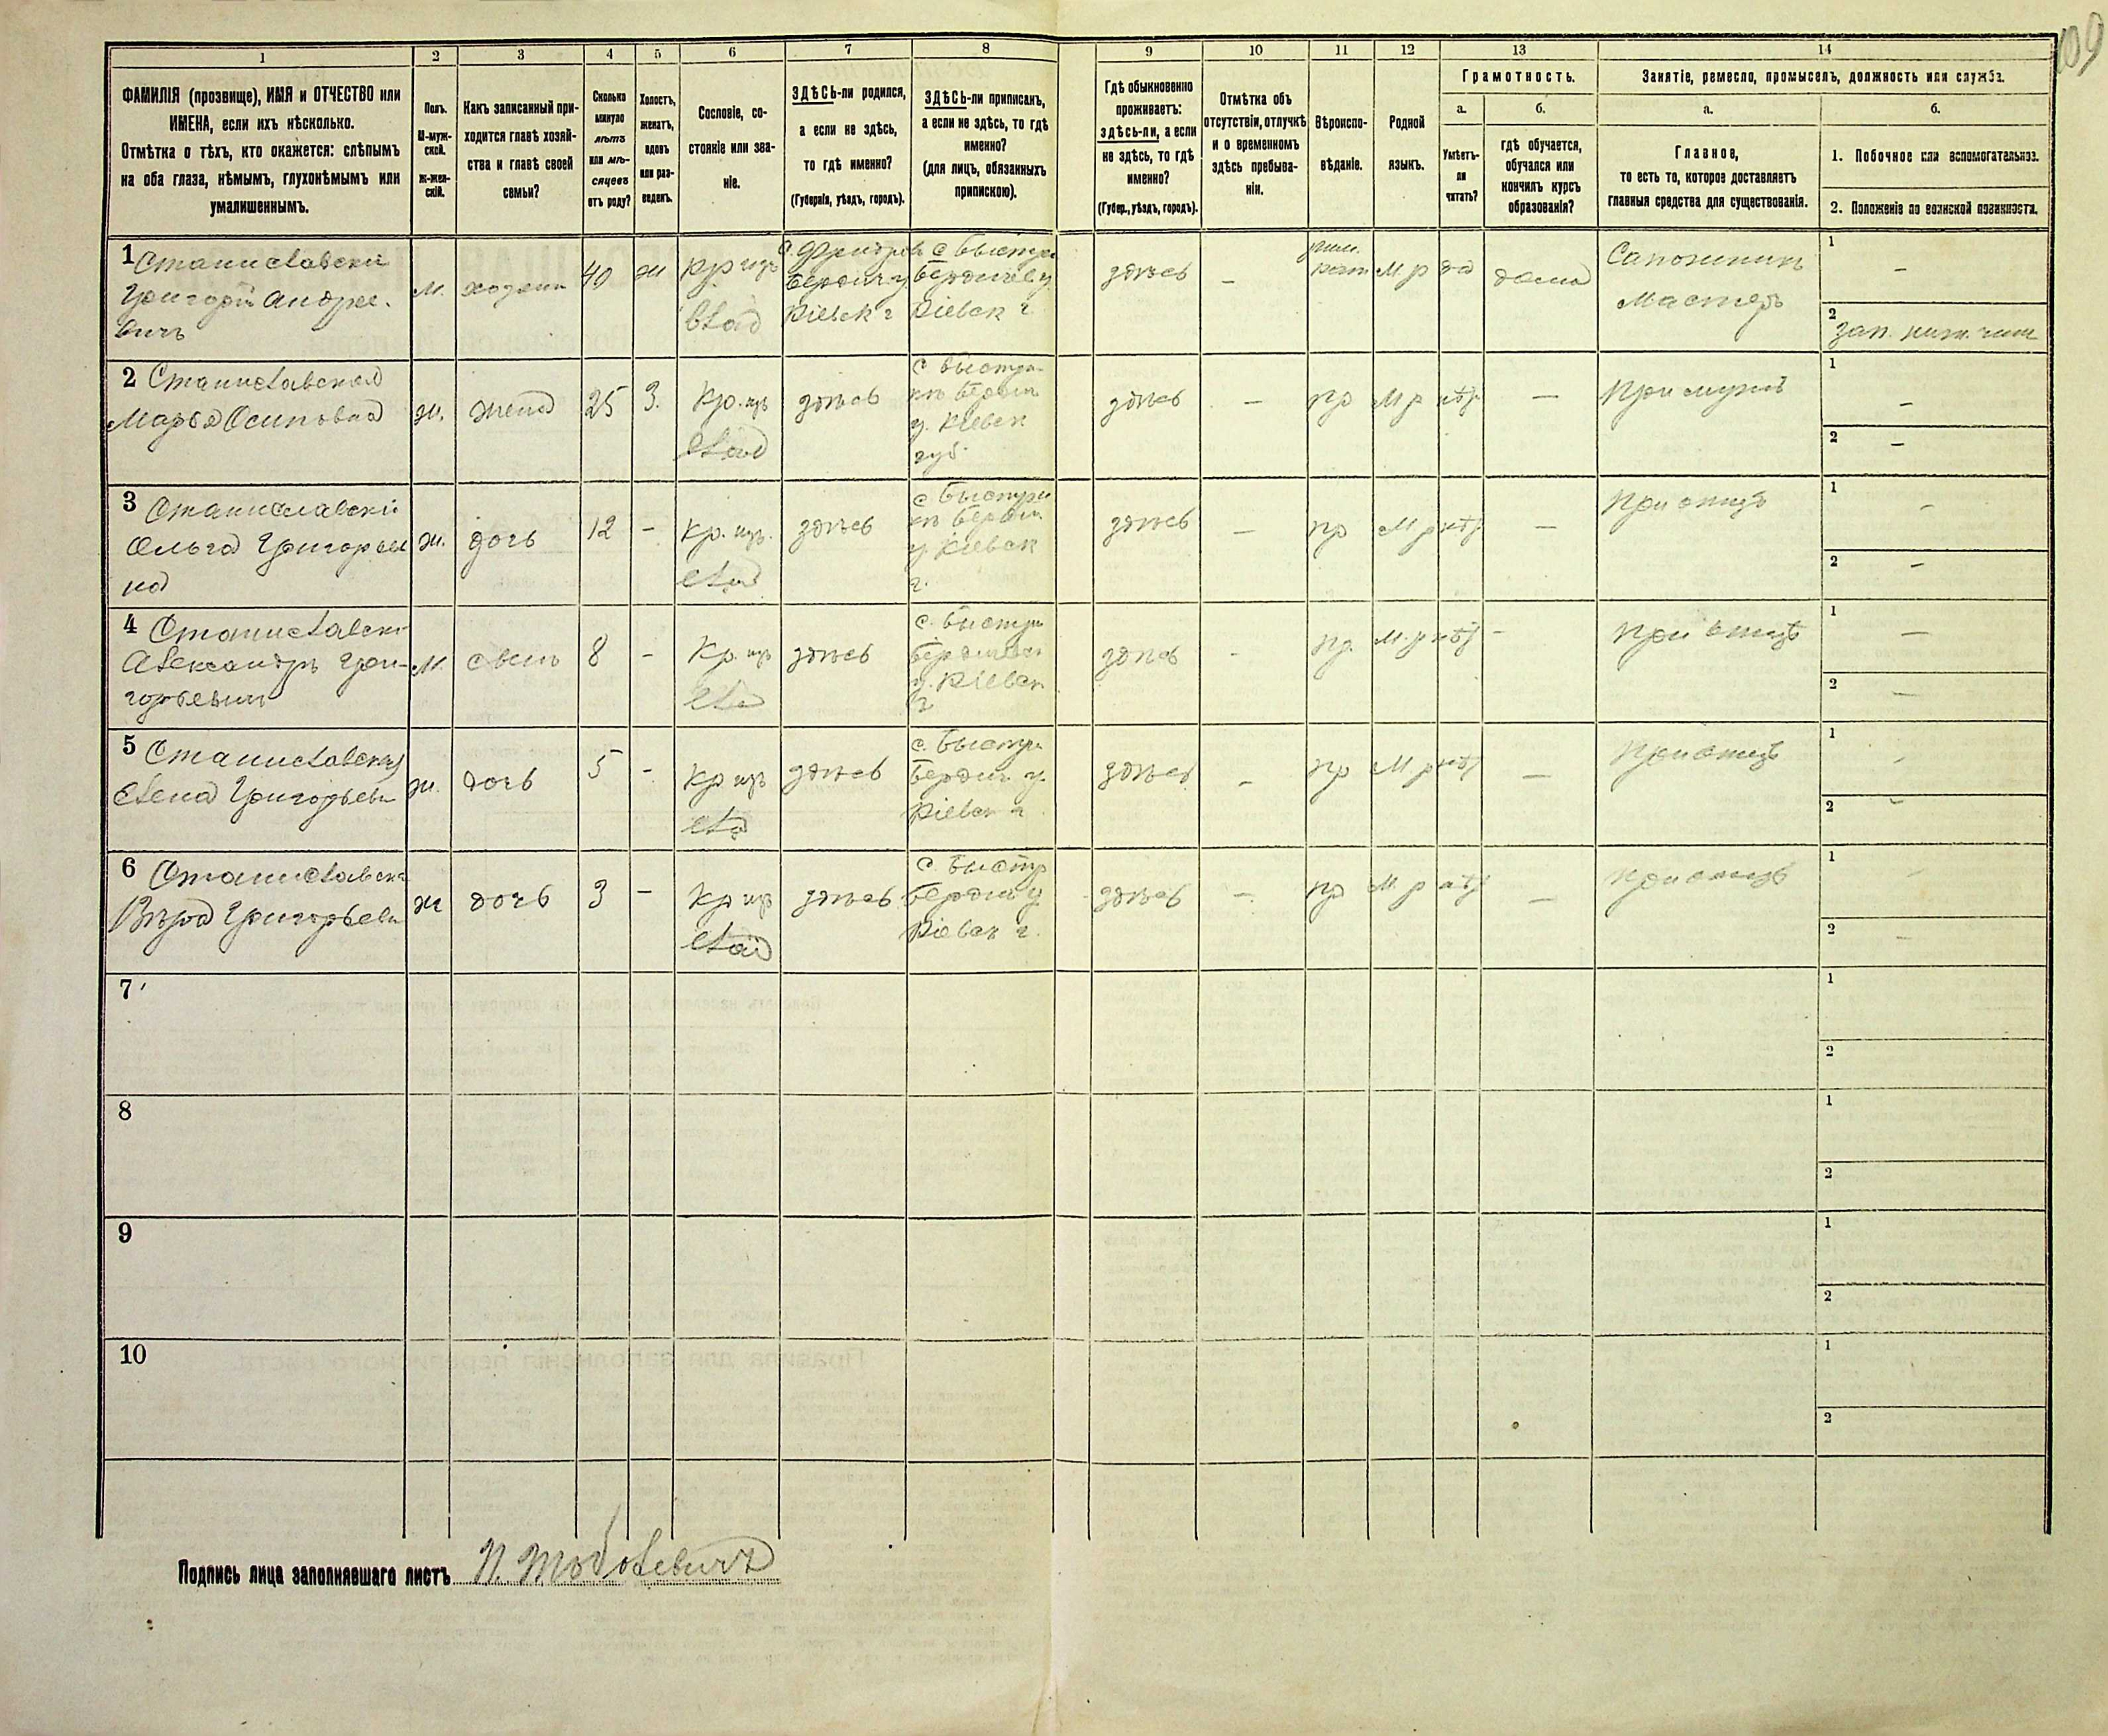 109
1
2
3
4
5
6
7
8
9
10
11
12
13
14
ФАМИЛІЯ (прозвище), ИМЯ и ОТЧЕСТВО или
ИМЕНА, если ихъ нѣсколько.
Отмѣтка о тѣхъ, кто окажется: слѣпымъ
на оба глаза, нѣмымъ, глухонѣмымъ или
умалишеннымъ.
Полъ.
М-муж-
ской.
Ж-жен-
скій.
Какъ записанный при-
ходится главѣ хозяй-
ства и главѣ своей
семьи?
Сколько
минуло
лѣтъ
или мѣ-
сяцевъ
отъ роду?
Холостъ,
женатъ,
вдовъ
или раз-
веденъ.
Сословіе, со-
стояніе или зва-
ніе.
ЗДѢСЬ-ли родился,
а если не здѣсь,
то гдѣ именно?
(Губернія, уѣздъ, городъ).
ЗДѢСЬ-ли приписанъ,
а если не здѣсь, то гдѣ
именно?
(для лицъ, обязанныхъ
припискою).
Гдѣ обыкновенно
проживаетъ:
здѣсь-ли, а если
не здѣсь, то гдѣ
именно?
(Губер., уѣздъ, городъ).
Отмѣтка объ
отсутствіи, отлучкѣ
и о временномъ
здѣсь пребыва-
ніи.
Вѣроиспо-
вѣданіе.
Родной
языкъ.
Грамотность.
а.
б.
Умѣетъ-
ли
читать?
гдѣ обучается,
обучался или
кончилъ курсъ
образованія?
Занятіе, ремесло, промыселъ, должность или служба.
а.
б.
Главное,
то есть то, которое доставляетъ
главныя средства для существованія.
1. Побочное или вспомогательное.
2. Положеніе по воинской повинности.
1 Станиславскій
Григорій Андрее-
вичъ
м.
хозяин
40
ж
кр изъ
влад
Бердич у
Кіевск г
с Быстри
Бердичев у
Кіевск г
здѣсь
–
рим.
кат
М р
да
дома
Сапожникъ
Мастеръ
1
–
2
зап. ниж. чин
2 Станиславская
Марья Осиповна
ж.
жена
25
З.
Кр. изъ
влад
здѣсь
с Быстри-
къ Бердич
у. Кіевск
губ.
здѣсь
–
пр
М р
нѣт
–
При мужѣ
1
–
2
–
3 Станиславскі
Ольга Григорьев
на
ж.
дочь
12
–
Кр. изъ.
влад
здѣсь
с Быстри
къ Бердич.
у Кіевск
г.
здѣсь
–
пр
М р
нѣт
–
При отцѣ
1
–
2
–
4 Станиславскі
Александръ Гри-
горьевич
М.
сынъ
8
–
Кр. изъ
вла
здѣсь
с. Быстри
Бердичев
у. Кіевск
г
здѣсь
–
пр.
М. р
нѣт
–
При отцѣ
1
–
2
–
5 Станиславская
Елена Григорьевн
ж.
дочь
5
–
Кр изъ
вла
здѣсь
с. Быстри
Бердич у.
Кіевск г
здѣсь
–
пр
М р
нѣт
–
При отцѣ
1
–
2
–
6 Станиславска
Вѣра Григорьевн
ж
дочь
3
–
Кр изъ
влад
здѣсь
с. Быстр
Бердич у
Кіевск г.
здѣсь
–
пр
М. р
нѣт
–
При отцѣ
1
–
2
–
7
1
2
8
1
2
9
1
2
10
1
2
Подпись лица заполнявшаго листъ